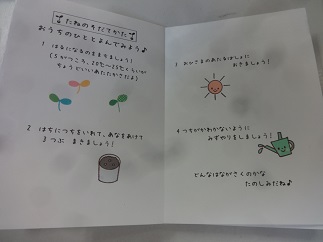 たねのそだてかた
おうちのひととよんでみよう♪
1 はるになるのをまちましょう!
(5がつごろ、20℃〜25℃くらいが
ちょうどいいあたたかさだよ)
2 はちにつちをいれて、あなをあけて
3つぶ まきましょう!
3 おひさまのあたるばしょに
おきましょう!
4 つちがかわかないように
みずやりをしましょう!
どんなはながさくのかな
たのしみだね♪